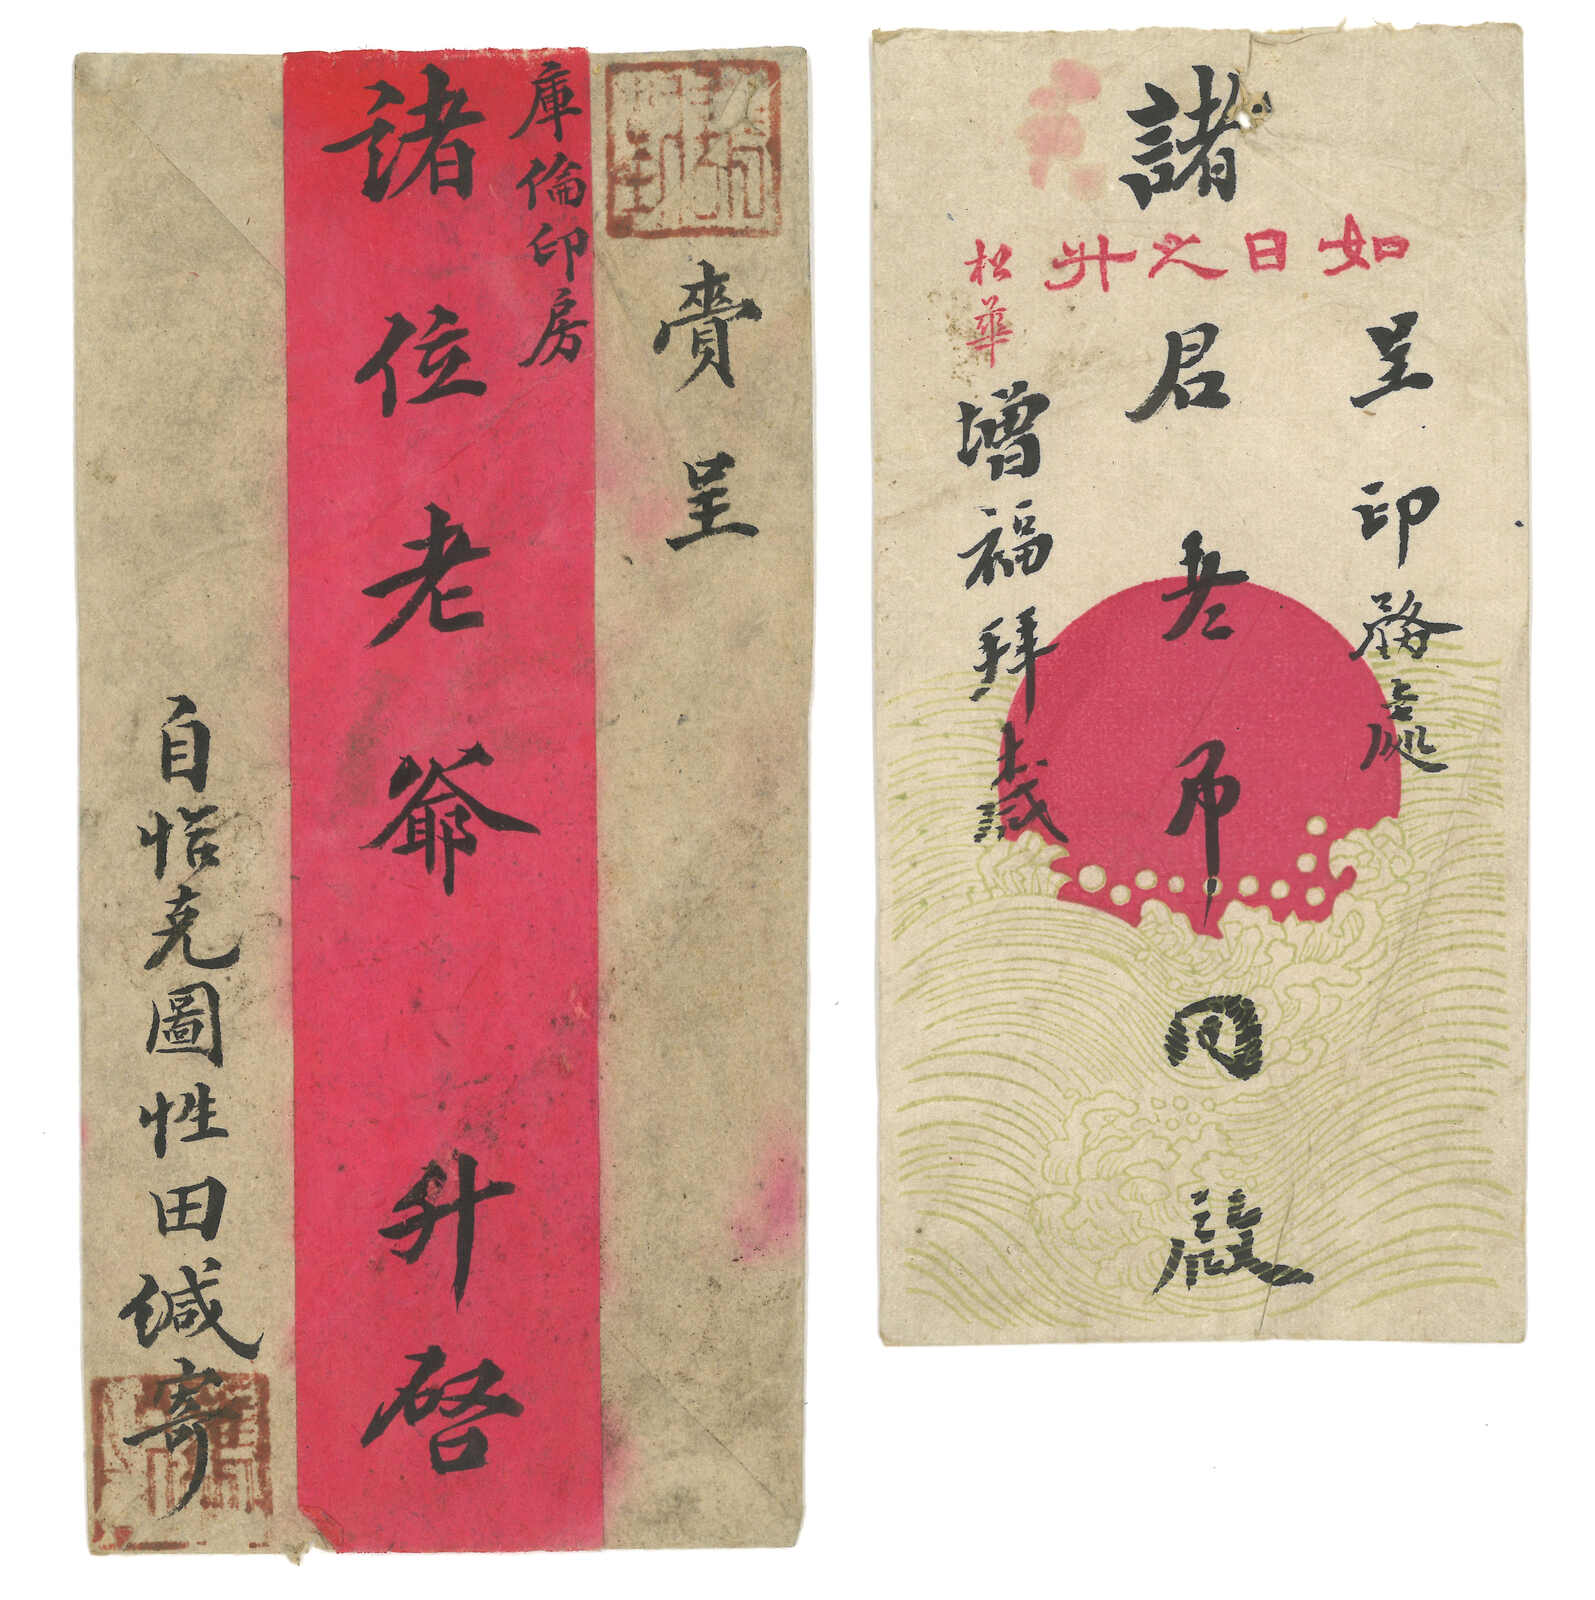 賫呈
庫倫印房
諸位老爺升啓
自恰克圖性田緘寄
如日之升
松華
呈印務處
諸君老帀同啟
增福拜上誠